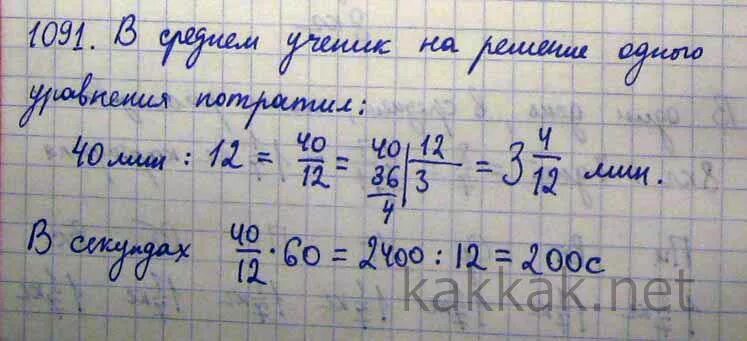 1091. В среднем ученик на решение одного
уравнения потратил:
40 мин : 12 = 40/12 = 40 | 12 = 3 4/12 мин.
36 | 3
4
В секундах 40/12 · 60 = 2400 : 12 = 200 с
kakkak.net